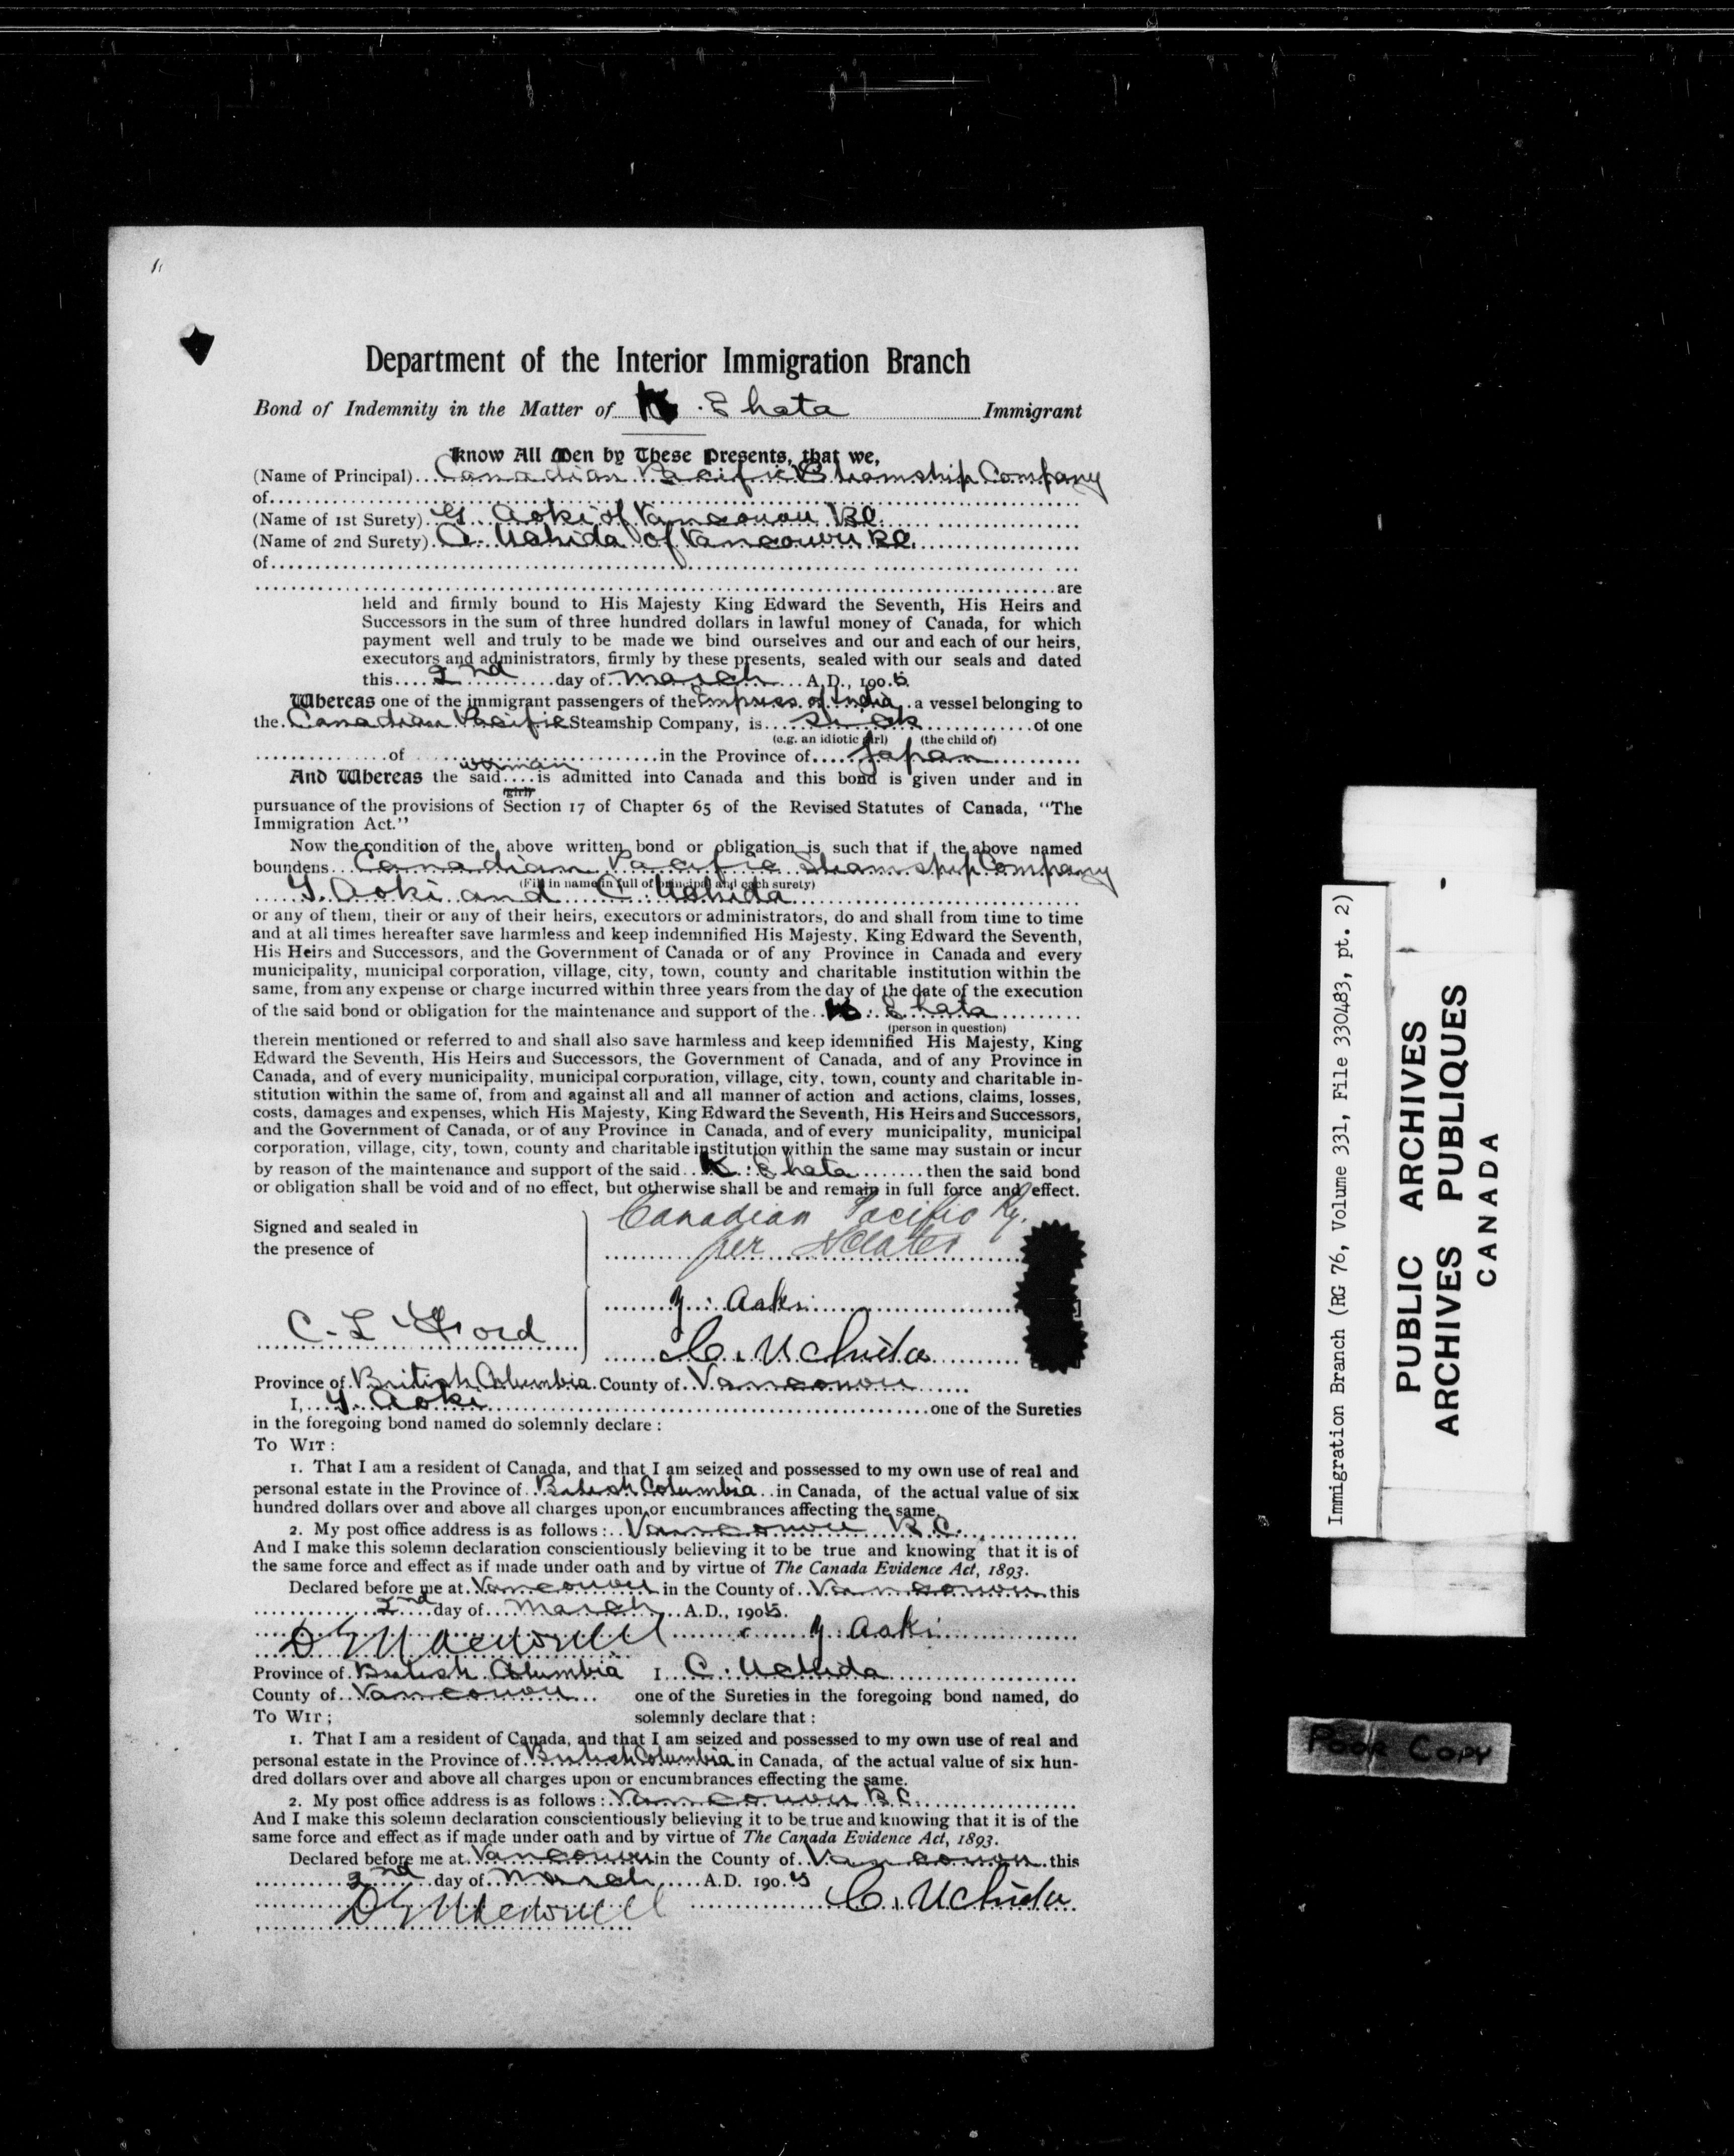 Department of the Interior Immigration Branch
Bond of Indemnity in the Matter of K. Ehata Immigrant
Know All Men by These Presents, that we,
(Name of Principal) Canadian Pacific Steamship Company
of
(Name of 1st Surety) Y. Aoki of Vancouver BC.
(Name of 2nd Surety) C. Uchida of Vancouver BC.
of
are
held and firmly bound to His Majesty King Edward the Seventh, His Heirs and
Successors in the sum of three hundred dollars in lawful money of Canada, for which
payment well and truly to be made we bind ourselves and our and each of our heirs,
executors and administrators, firmly by these presents, sealed with our seals and dated
this 2nd day of March A.D., 1905
Whereas one of the immigrant passengers of the Empress of India a vessel belonging to
the Canadian Pacific Steamship Company, is Sick of one
(e.g. an idiotic girl) (the child of)
of in the Province of Japan
And Whereas the said woman is admitted into Canada and this bond is given under and in
(girl)
pursuance of the provisions of Section 17 of Chapter 65 of the Revised Statutes of Canada, "The
Immigration Act."
Now the condition of the above written bond or obligation is such that if the above named
boundens Canadian Pacific Steamship Company
(Fill in name in full of principal and each surety)
Y. Aoki and C. Uchida
or any of them, their or any of their heirs, executors or administrators, do and shall from time to time
and at all times hereafter save harmless and keep indemnified His Majesty, King Edward the Seventh,
His Heirs and Successors, and the Government of Canada or of any Province in Canada and every
municipality, municipal corporation, village, city, town, county and charitable institution within the
same, from any expense or charge incurred within three years from the day of the date of the execution
of the said bond or obligation for the maintenance and support of the K. Ehata
(person in question)
therein mentioned or referred to and shall also save harmless and keep idemnified His Majesty, King
Edward the Seventh, His Heirs and Successors, the Government of Canada, and of any Province in
Canada, and of every municipality, municipal corporation, village, city, town, county and charitable in-
stitution within the same of, from and against all and all manner of action and actions, claims, losses,
costs, damages and expenses, which His Majesty, King Edward the Seventh, His Heirs and Successors,
and the Government of Canada, or of any Province in Canada, and of every municipality, municipal
corporation, village, city, town, county and charitable institution within the same may sustain or incur
by reason of the maintenance and support of the said K. Ehata then the said bond
or obligation shall be void and of no effect, but otherwise shall be and remain in full force and effect.
Signed and sealed in
the presence of
Canadian Pacific Ry.
per
Y. Aoki
C. Uchida
Province of British Columbia County of Vancouver
I, Y. Aoki one of the Sureties
in the foregoing bond named do solemnly declare :
To Wit :
1. That I am a resident of Canada, and that I am seized and possessed to my own use of real and
personal estate in the Province of British Columbia in Canada, of the actual value of six
hundred dollars over and above all charges upon or encumbrances affecting the same.
2. My post office address is as follows : Vancouver B.C.
And I make this solemn declaration conscientiously believing it to be true and knowing that it is of
the same force and effect as if made under oath and by virtue of The Canada Evidence Act, 1893.
Declared before me at Vancouver in the County of Vancouver this
2nd day of March A.D., 1905.
Y. Aoki
Province of British Columbia I C. Uchida
County of Vancouver one of the Sureties in the foregoing bond named, do
To Wit ; solemnly declare that :
1. That I am a resident of Canada, and that I am seized and possessed to my own use of real and
personal estate in the Province of British Columbia in Canada, of the actual value of six hun-
dred dollars over and above all charges upon or encumbrances effecting the same.
2. My post office address is as follows : Vancouver B.C.
And I make this solemn declaration conscientiously believing it to be true and knowing that it is of the
same force and effect as if made under oath and by virtue of The Canada Evidence Act, 1893.
Declared before me at Vancouver in the County of Vancouver this
2nd day of March A.D. 1905
C. Uchida
Immigration Branch (RG 76, Volume 331, File 330483, pt. 2)
PUBLIC ARCHIVES
ARCHIVES PUBLIQUES
CANADA
Poor Copy